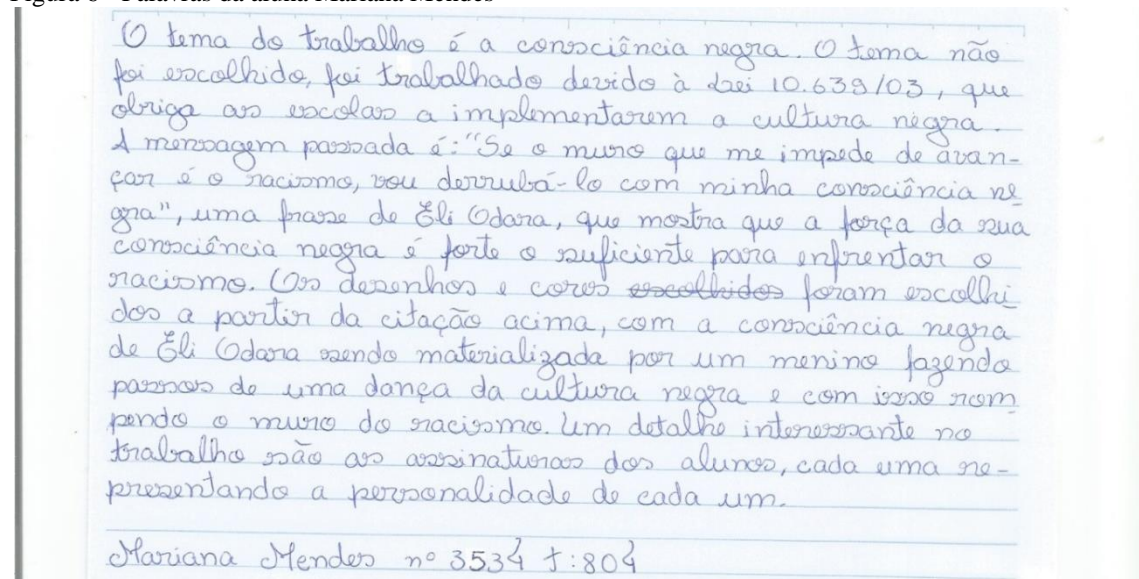 O tema do trabalho é a consciência negra. O tema não
foi escolhido, foi trabalhado devido à Lei 10.639/03, que
obriga as escolas a implementarem a cultura negra.
A mensagem passada é: "Se o muro que me impede de avan-
çar é o racismo, vou derrubá-lo com minha consciência ne
gra", uma frase de Eli Odara, que mostra que a força da sua
consciência negra é forte o suficiente para enfrentar o
racismo. Os desenhos e cores escolhidos foram escolhi
dos a partir da citação acima, com a consciência negra
de Eli Odara sendo materializada por um menino fazendo
passos de uma dança da cultura negra e com isso rom
pendo o muro do racismo. Um detalhe interessante no
trabalho são as assinaturas dos alunos, cada uma re-
presentando a personalidade de cada um.
Mariana Mendes nº 3534 t:804